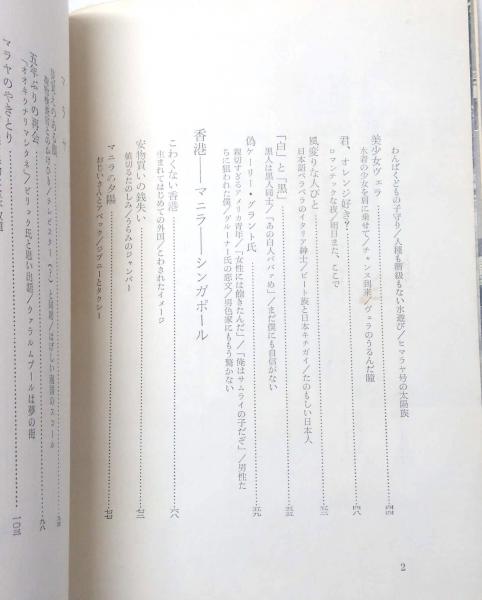 わんぱくどもの子守り／人種も階級もない水遊び／ヒマラヤ号の太陽族
美少女ヴェラ……四四
水着の少女を肩に乗せて／チャンス到来／ヴェラのうるんだ瞳
君、オレンジ好き？……四八
ロマンチックな夜／明日また、ここで
風変りな人びと……五三
日本語ペラペラのイタリア紳士／ビート族と日本キチガイ／たのもしい日本人
「白」と「黒」……五五
黒人は黒人同士／「あの白人ババァめ」／まだ僕にも自信がない
偽ケーリー・グラント氏……五九
親切すぎるアメリカ青年／「女性には飽きたんだ」／「俺はサムライの子だぞ」／男性た
ちに狙われた僕／ダルーナー氏の恋文／男色家にももう驚かない
香港――マニラ――シンガポール
こわくない香港……六八
生まれてはじめての外国／こわされたイメージ
安物買いの銭失い……七三
値切るたのしみ／うらみのジャンパー
マニラの夕陽……七七
おじいさんとラベック／ジプニーとタクシー
五年ぶりの再会……九八
「オオキクナリマシタネ」／ビリョク氏と思い出話／クァラルムプールは夢の街
マラヤのやきとり……一〇三
2